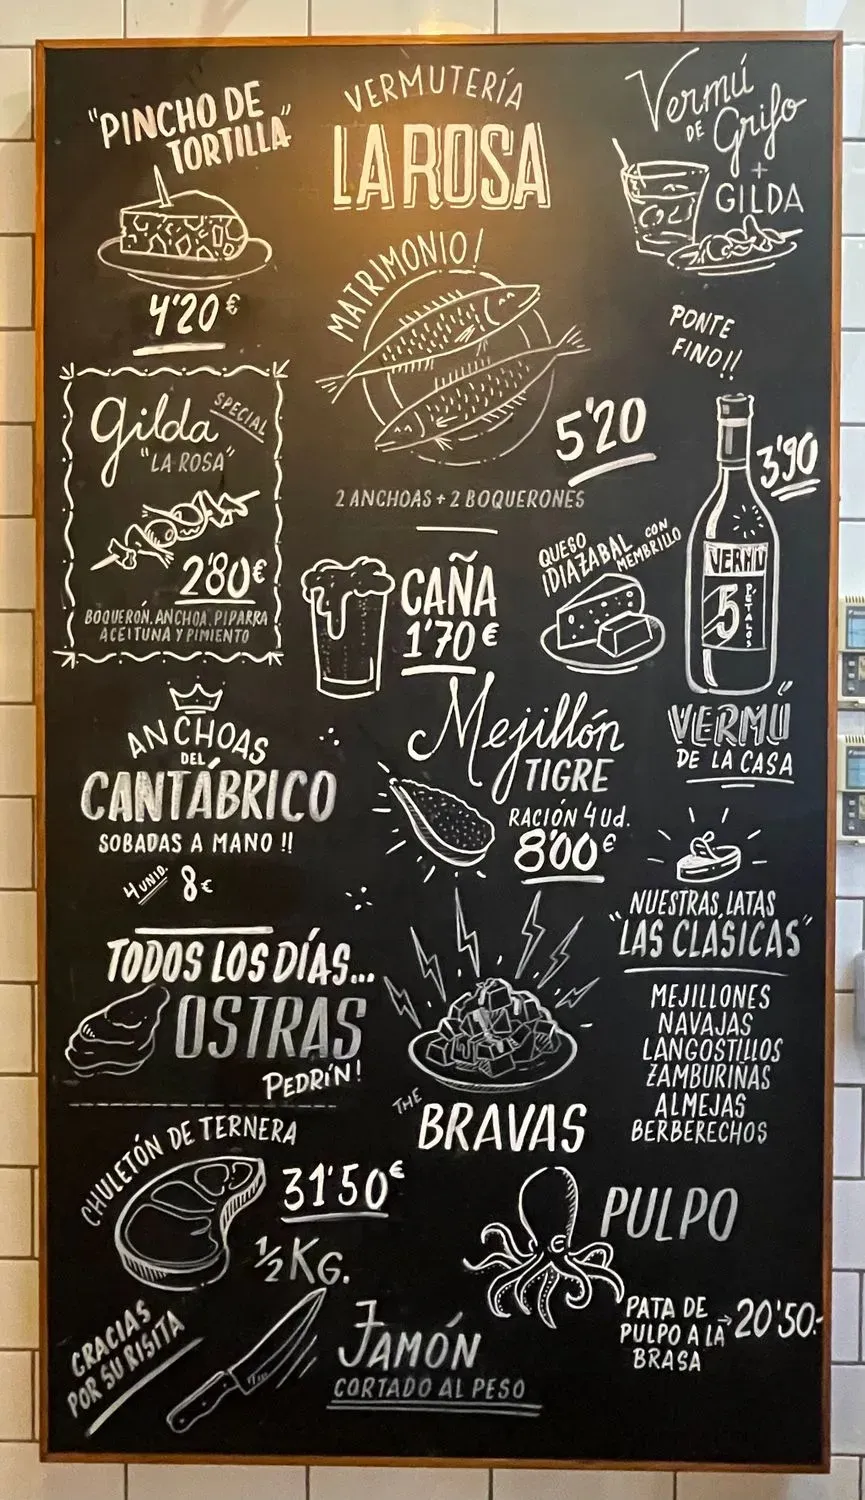 "PINCHO DE
TORTILLA"
4'20€
VERMUTERÍA
LA ROSA
Vermú
DE Grifo
+
GILDA
PONTE
FINO!!
MATRIMONIO!
5'20
2 ANCHOAS + 2 BOQUERONES
Gilda
SPECIAL
"LA ROSA"
2'80€
BOQUERÓN, ANCHOA, PIPARRA
ACEITUNA Y PIMIENTO
CAÑA
1'70€
QUESO
IDIAZABAL CON
MEMBRILLO
3'90
VERMÚ
5
PÉTALOS
VERMÚ
DE LA CASA
ANCHOAS
DEL
CANTÁBRICO
SOBADAS A MANO !!
4 UNID. 8€
Mejillón
TIGRE
RACIÓN 4 Ud.
8'00€
NUESTRAS LATAS
"LAS CLÁSICAS"
MEJILLONES
NAVAJAS
LANGOSTILLOS
ZAMBURIÑAS
ALMEJAS
BERBERECHOS
TODOS LOS DÍAS...
OSTRAS
PEDRÍN!
THE
BRAVAS
CHULETÓN DE TERNERA
31'50€
1/2 KG.
PULPO
PATA DE
PULPO A LA
BRASA
→20'50.-
GRACIAS
POR SU RISITA
JAMÓN
CORTADO AL PESO